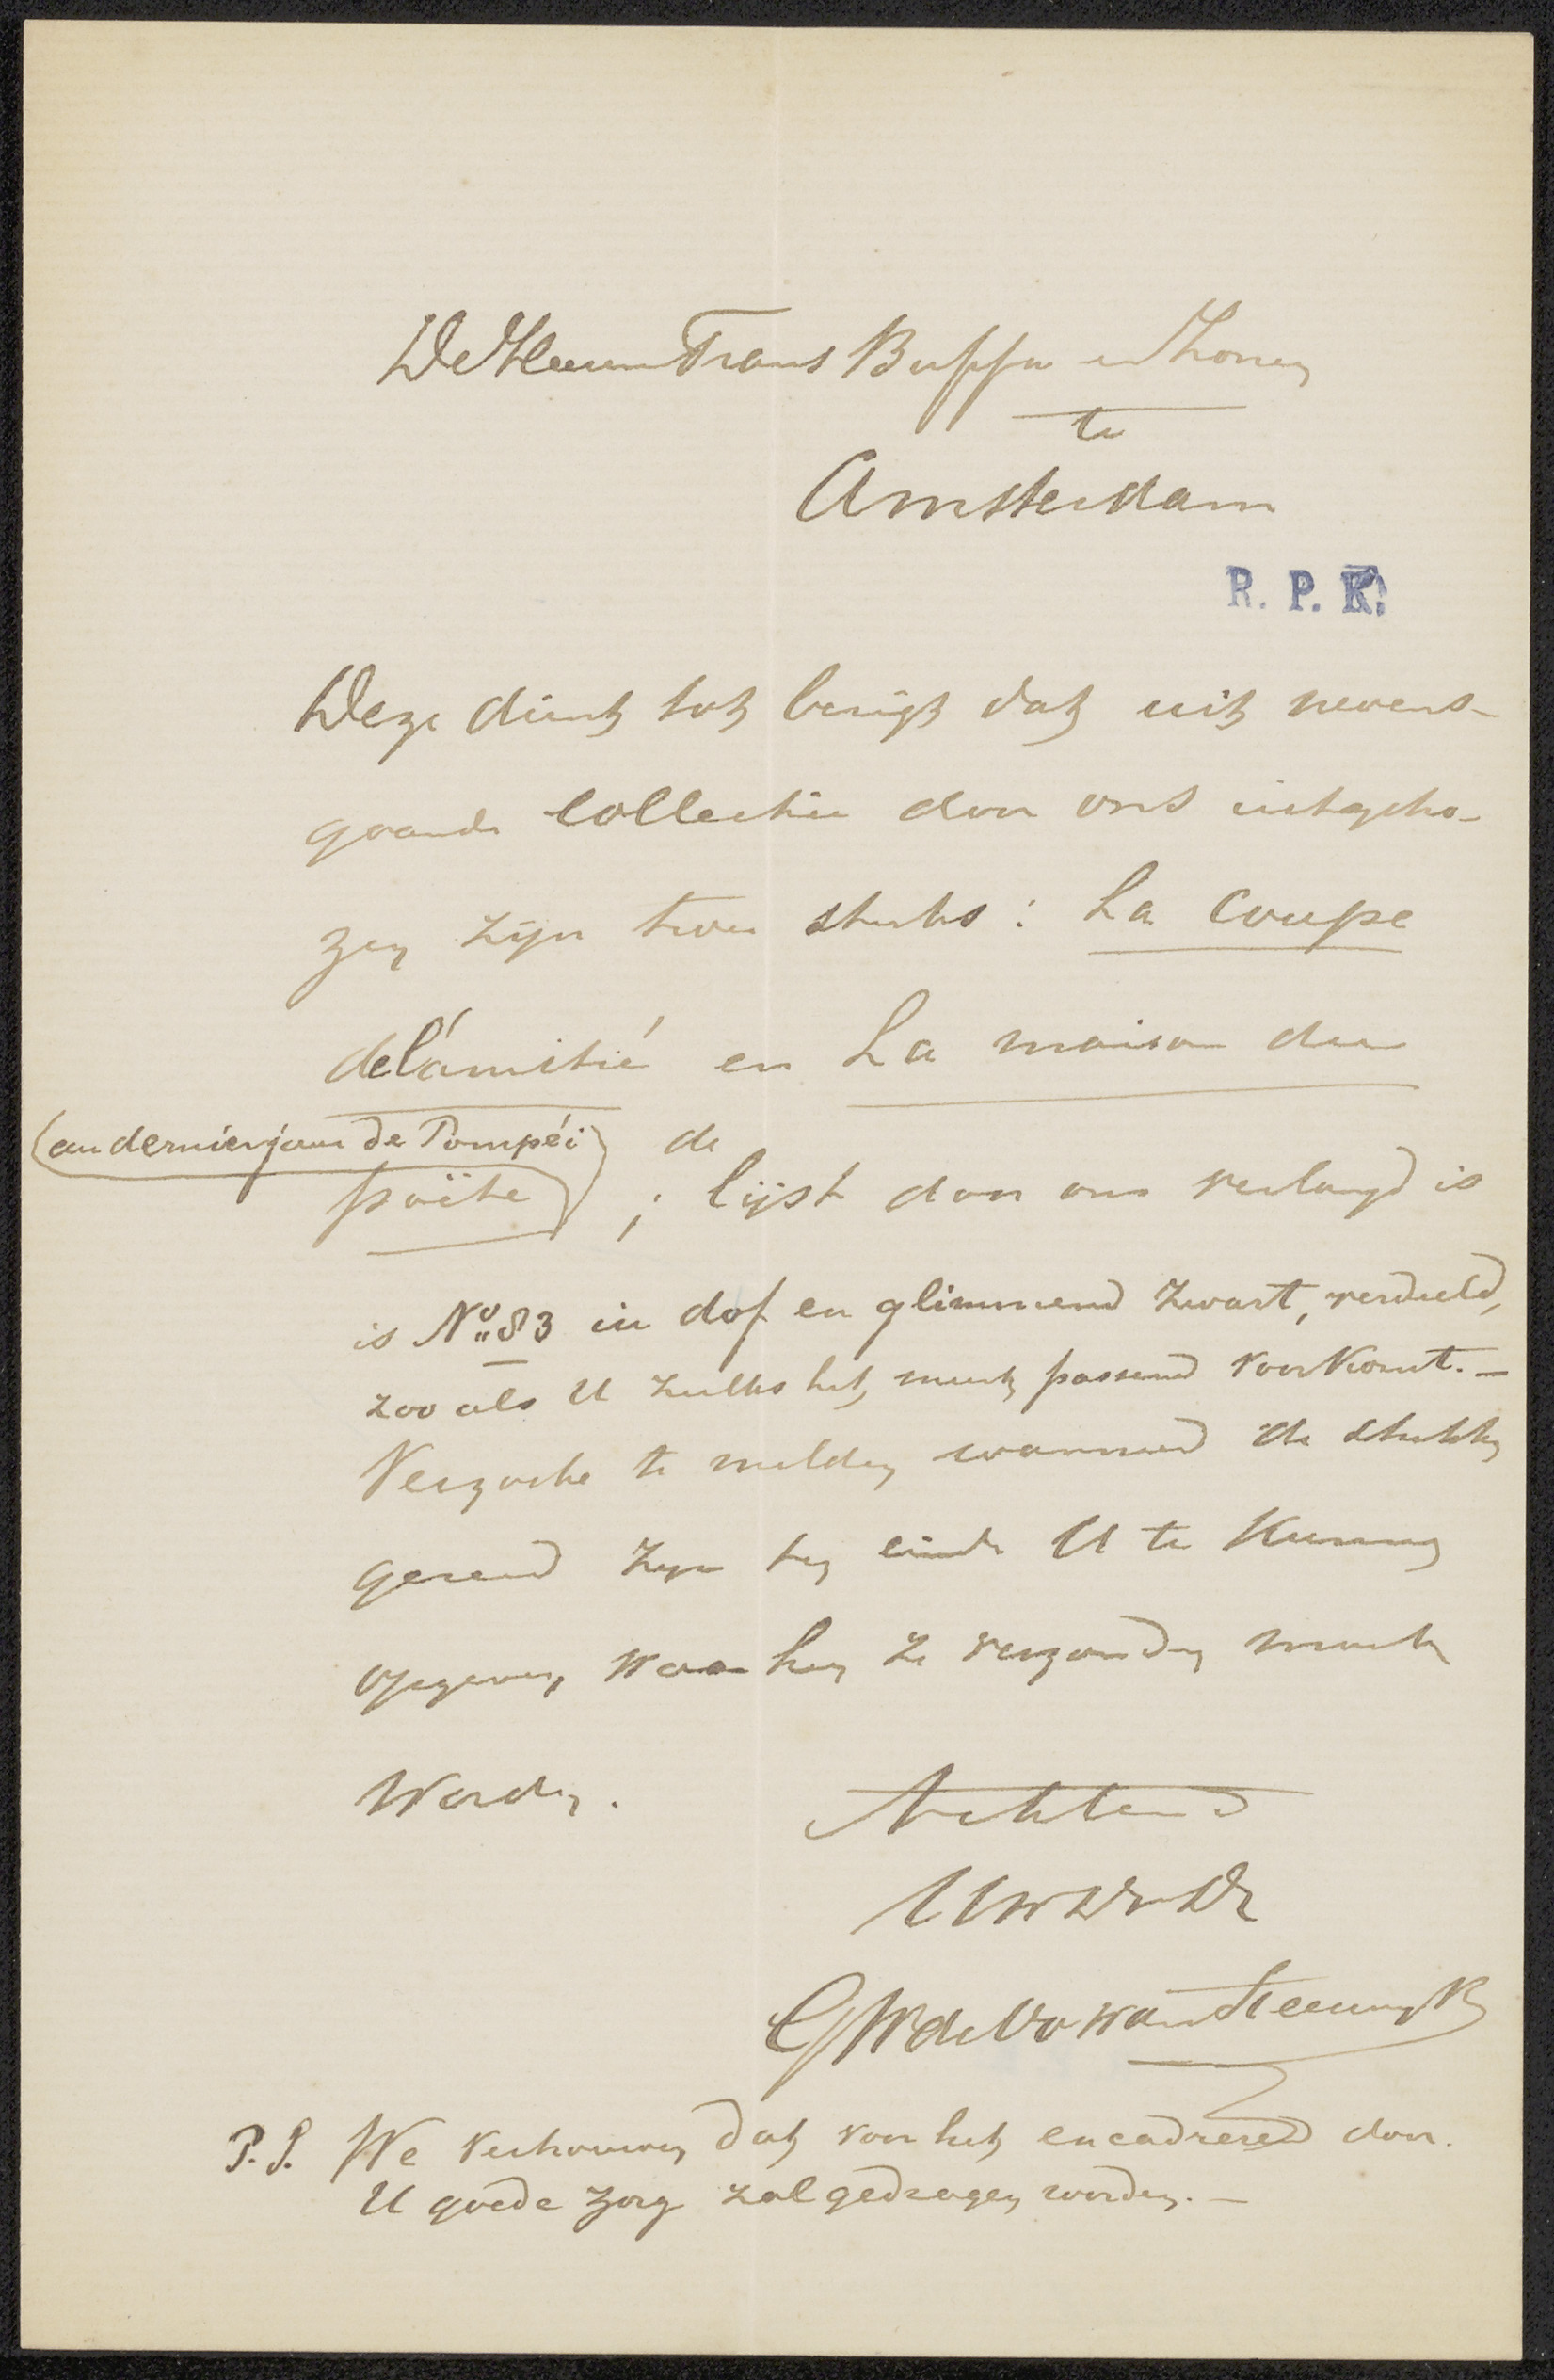 De Heeren Frans Buffa en Zonen
te
Amsterdam
R. P. K.
Deze dient tot berigt dat uit nevens-
gaande Collectie door ons uitgeko-
zen zijn twee stuks: La Coupe
de l'ámitié en La maison du
(au dernier jour de Pompéi) de
poëte ; lijst door ons verlangd is
is No. 83 in dof en glimmend zwart, verdeeld,
zoo als U zulks het meest passend voorkomt. —
Verzoeke te melden wanneer de stukken
gereed zijn ten einde U te kunnen
opgeven, waarheen ze verzonden moeten
worden.
Achtend
UwDwDr
P.S. We vertrouwen dat voor het encadreren door
U goede zorg zal gedragen worden. —